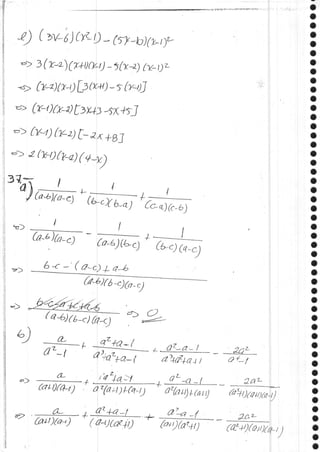 e) (3x-6)(x²-1) - (5x-10)(x-1)²
=> 3(x-2)(x+1)(x-1) - 5(x-2)(x-1)²
=> (x-2)(x-1)[3(x+1) - 5(x-1)]
=> (x-1)(x-2)[3x+3-5x+5]
=> (x-1)(x-2)[-2x+8]
=> 2(x-1)(x-2)(4-x)
37-
a) 1/(a-b)(a-c) + 1/(b-c)(b-a) + 1/(c-a)(c-b)
=> 1/(a-b)(a-c) - 1/(a-b)(b-c) + 1/(b-c)(a-c)
=> b-c-(a-c)+a-b/(a-b)(b-c)(a-c)
=> b-c-a+c+a-b/(a-b)(b-c)(a-c) => 0
b) a/a²-1 + a²+a-1/a³-a²+a-1 + a²-a-1/a³+a²+a+1 - 2a²/a⁴-1
=> a/(a+1)(a-1) + a²+a-1/a²(a-1)+(a-1) + a²-a-1/a²(a+1)+(a+1) - 2a²/(a²+1)(a+1)(a-1)
=> a/(a+1)(a-1) + a²+a-1/(a-1)(a²+1) + a²-a-1/(a+1)(a²+1) - 2a²/(a²+1)(a+1)(a-1)